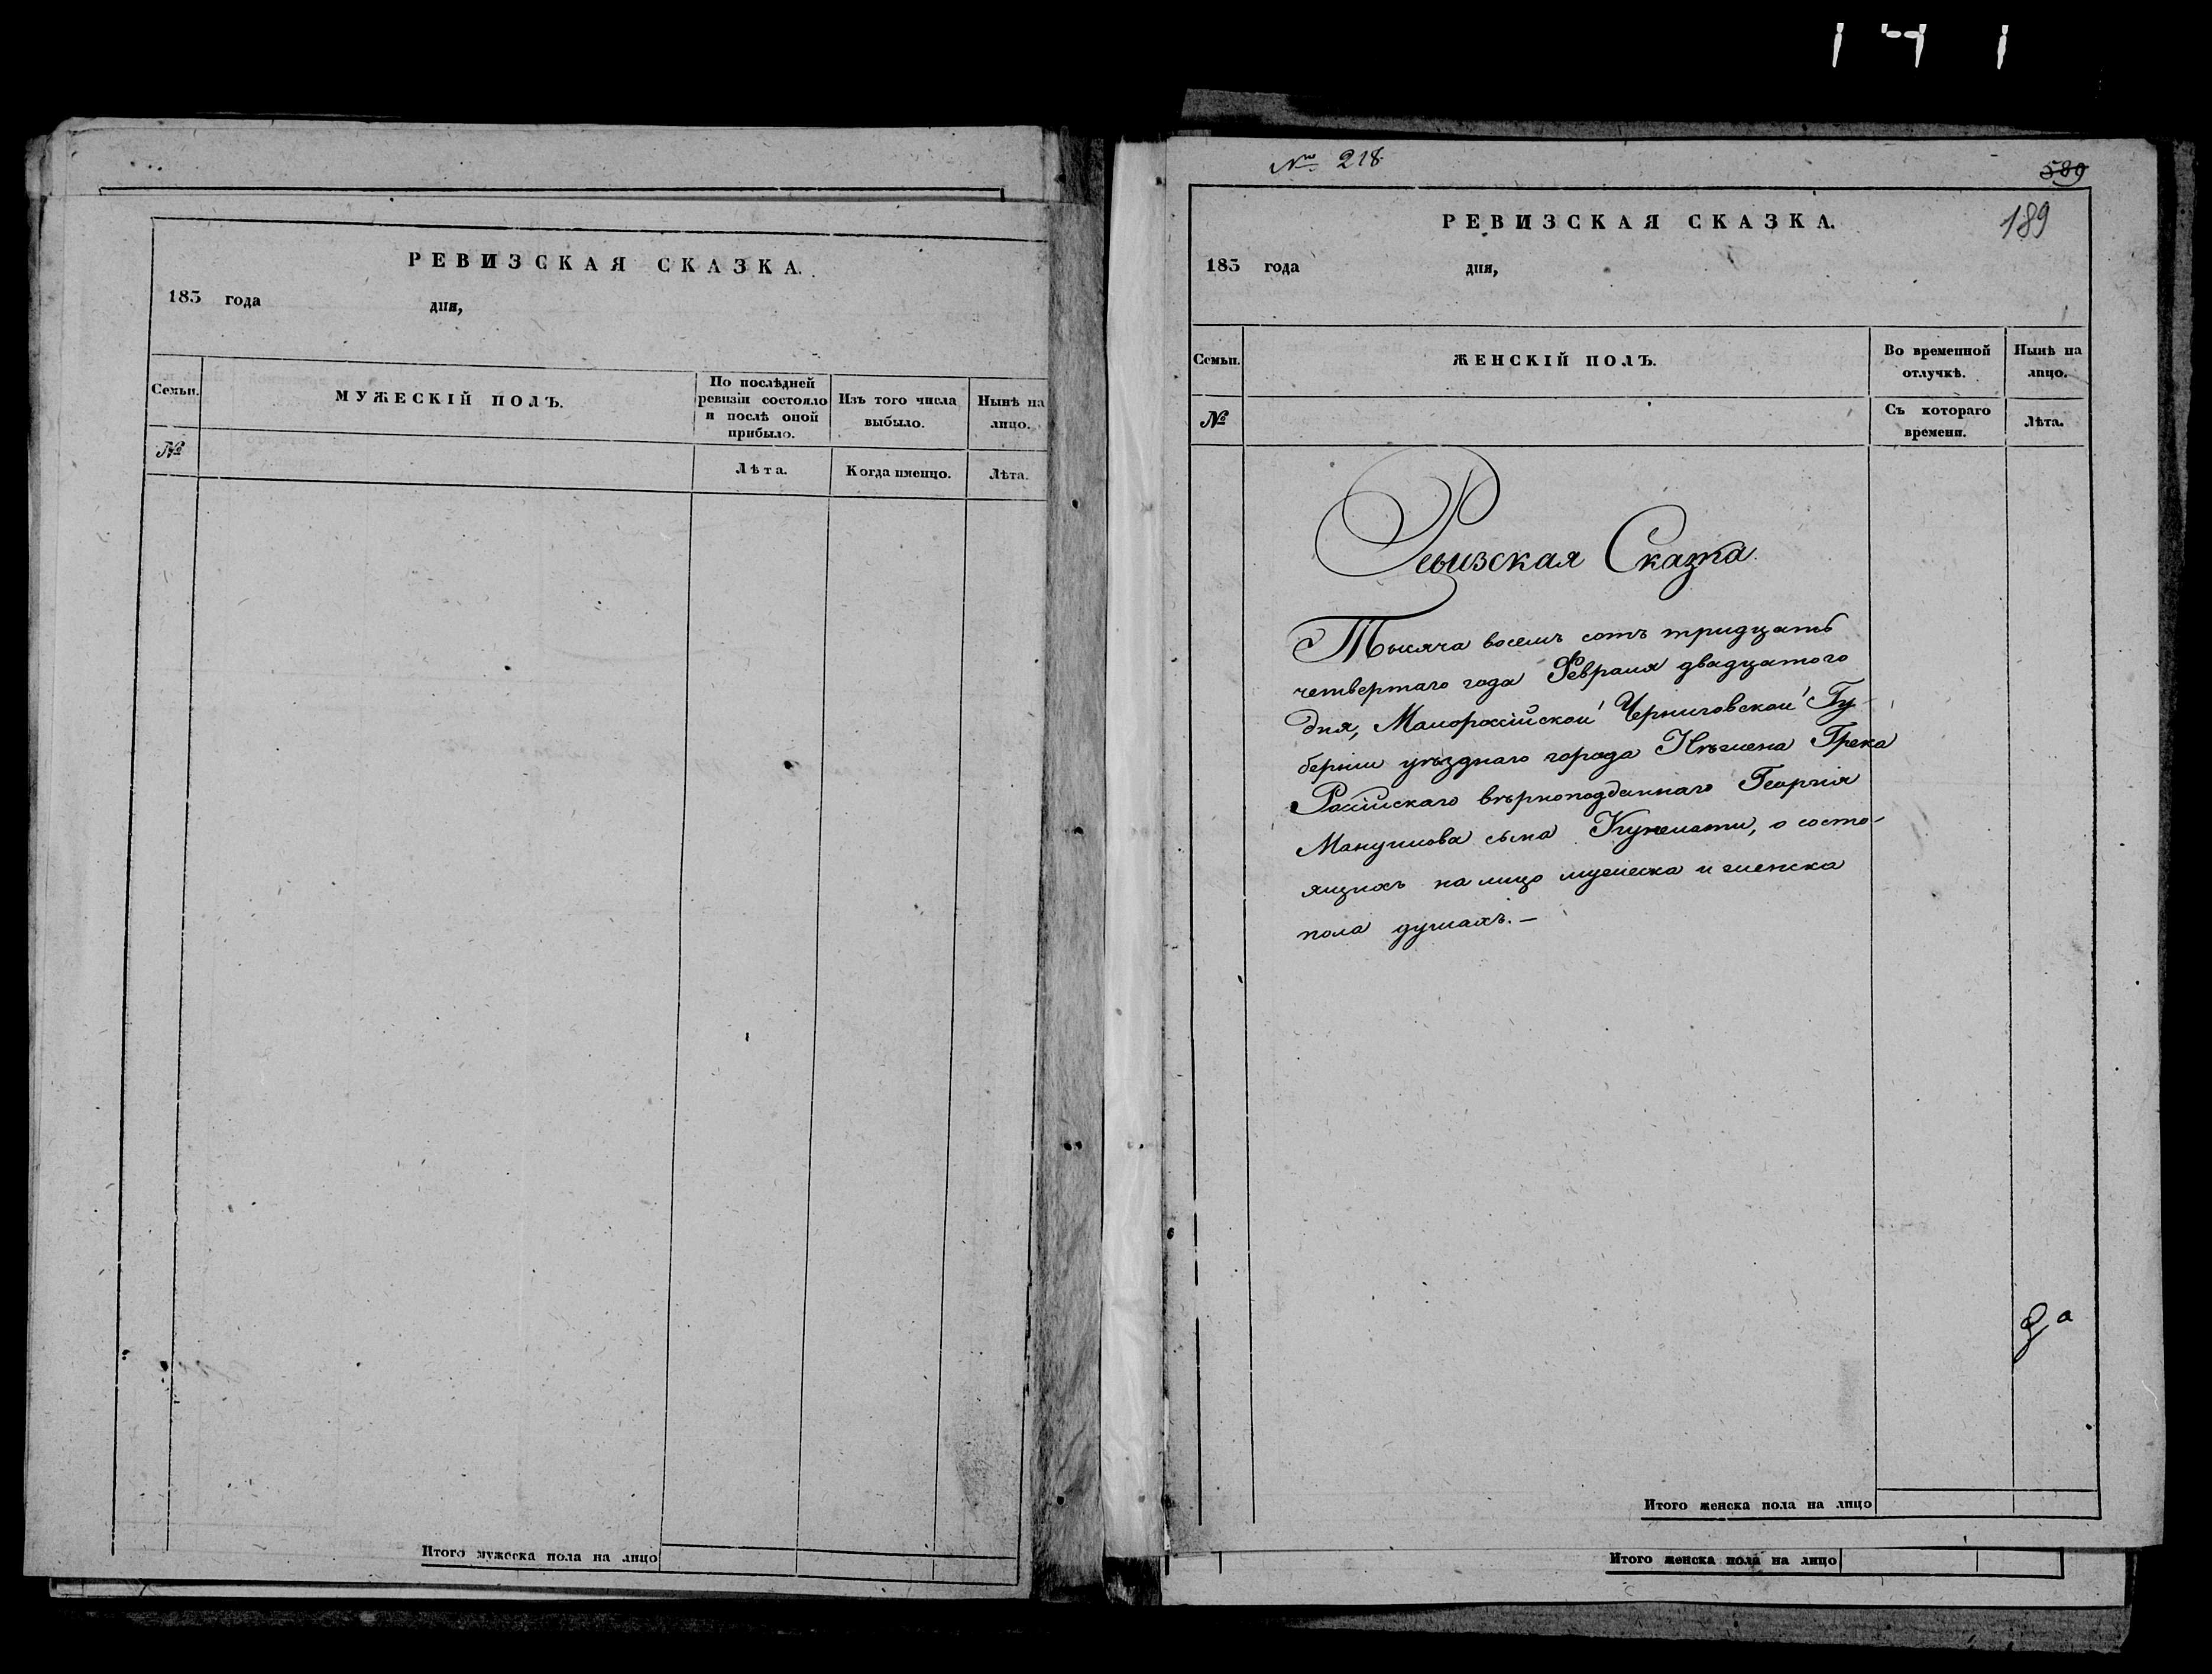 РЕВИЗСКАЯ СКАЗКА.
183 года дня,
Семьи.
МУЖЕСКІЙ ПОЛЪ.
По послѣдней
ревизіи состояло
и послѣ оной
прибыло.
Изъ того числа
выбыло.
Нынѣ на
лицо.
№
Лѣта.
Когда именно.
Лѣта.
Итого мужеска пола на лицо
№ 218.
589
189
РЕВИЗСКАЯ СКАЗКА.
183 года дня,
Семьи.
ЖЕНСКІЙ ПОЛЪ.
Во временной
отлучкѣ.
Нынѣ на
лицо.
№
Съ котораго
времени.
Лѣта.
Ревизская Сказка
Тысяча восемь сотъ тридцать
четвертаго года Февраля двадцатого
дня, Малороссійской Черниговской Гу-
берніи уѣзднаго города Нѣжена Грека
Россійскаго вѣрноподданнаго Георгія
Мануилова сына, о состо-
ящихъ на лицо мужеска и женска
пола душахъ.—
Итого женска пола на лицо
Итого женска пола на лицо